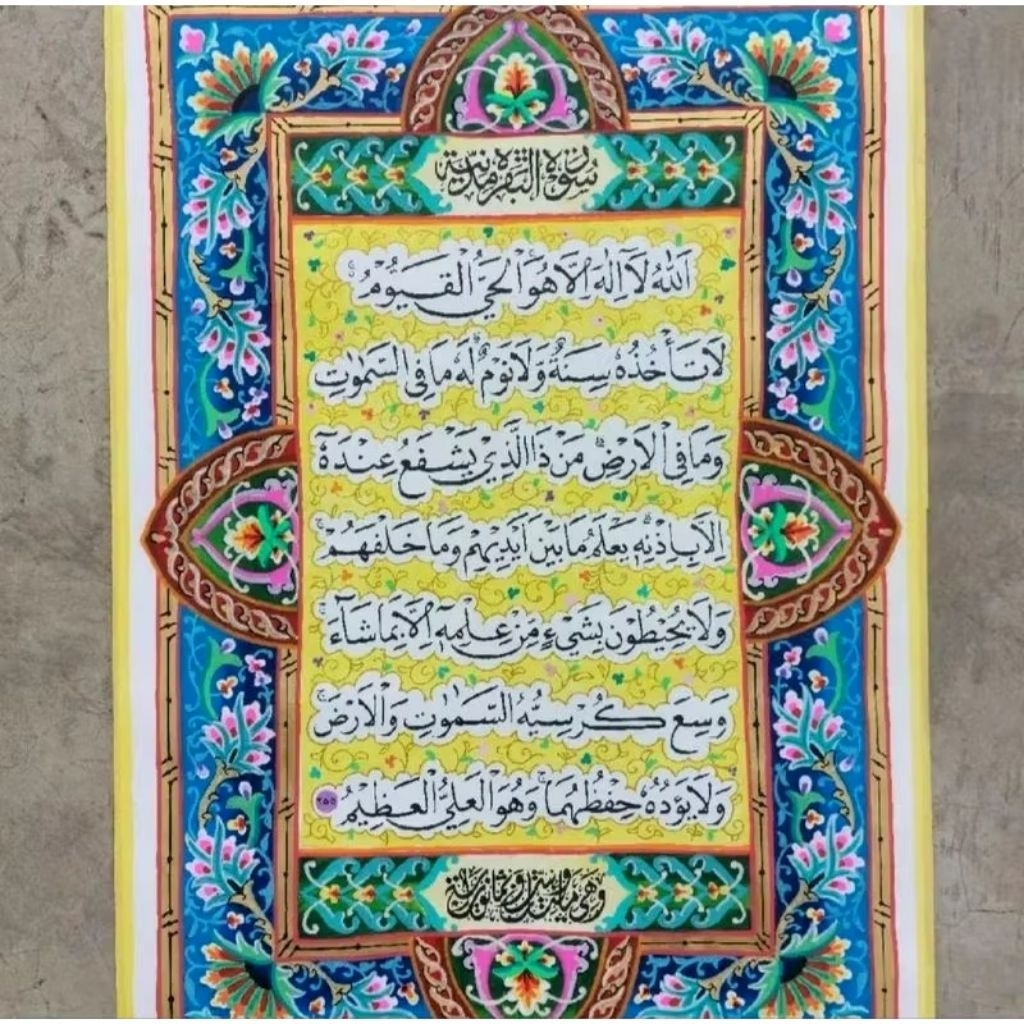 سُورَةُ الْبَقَرَةِ مَدَنِيَّةٌ
اَللّٰهُ لَآ اِلٰهَ اِلَّا هُوَۚ اَلْحَيُّ الْقَيُّوْمُ ەۚ
لَا تَأْخُذُهٗ سِنَةٌ وَّلَا نَوْمٌۗ لَهٗ مَا فِى السَّمٰوٰتِ
وَمَا فِى الْاَرْضِۗ مَنْ ذَا الَّذِيْ يَشْفَعُ عِنْدَهٗٓ
اِلَّا بِاِذْنِهٖۗ يَعْلَمُ مَا بَيْنَ اَيْدِيْهِمْ وَمَا خَلْفَهُمْۚ
وَلَا يُحِيْطُوْنَ بِشَيْءٍ مِّنْ عِلْمِهٖٓ اِلَّا بِمَا شَاۤءَۚ
وَسِعَ كُرْسِيُّهُ السَّمٰوٰتِ وَالْاَرْضَۚ
وَلَا يَـُٔوْدُهٗ حِفْظُهُمَاۚ وَهُوَ الْعَلِيُّ الْعَظِيْمُ ٢٥٥
وَهِيَ مِائَتَانِ وَسِتٌّ وَثَمَانُونَ آيَةً